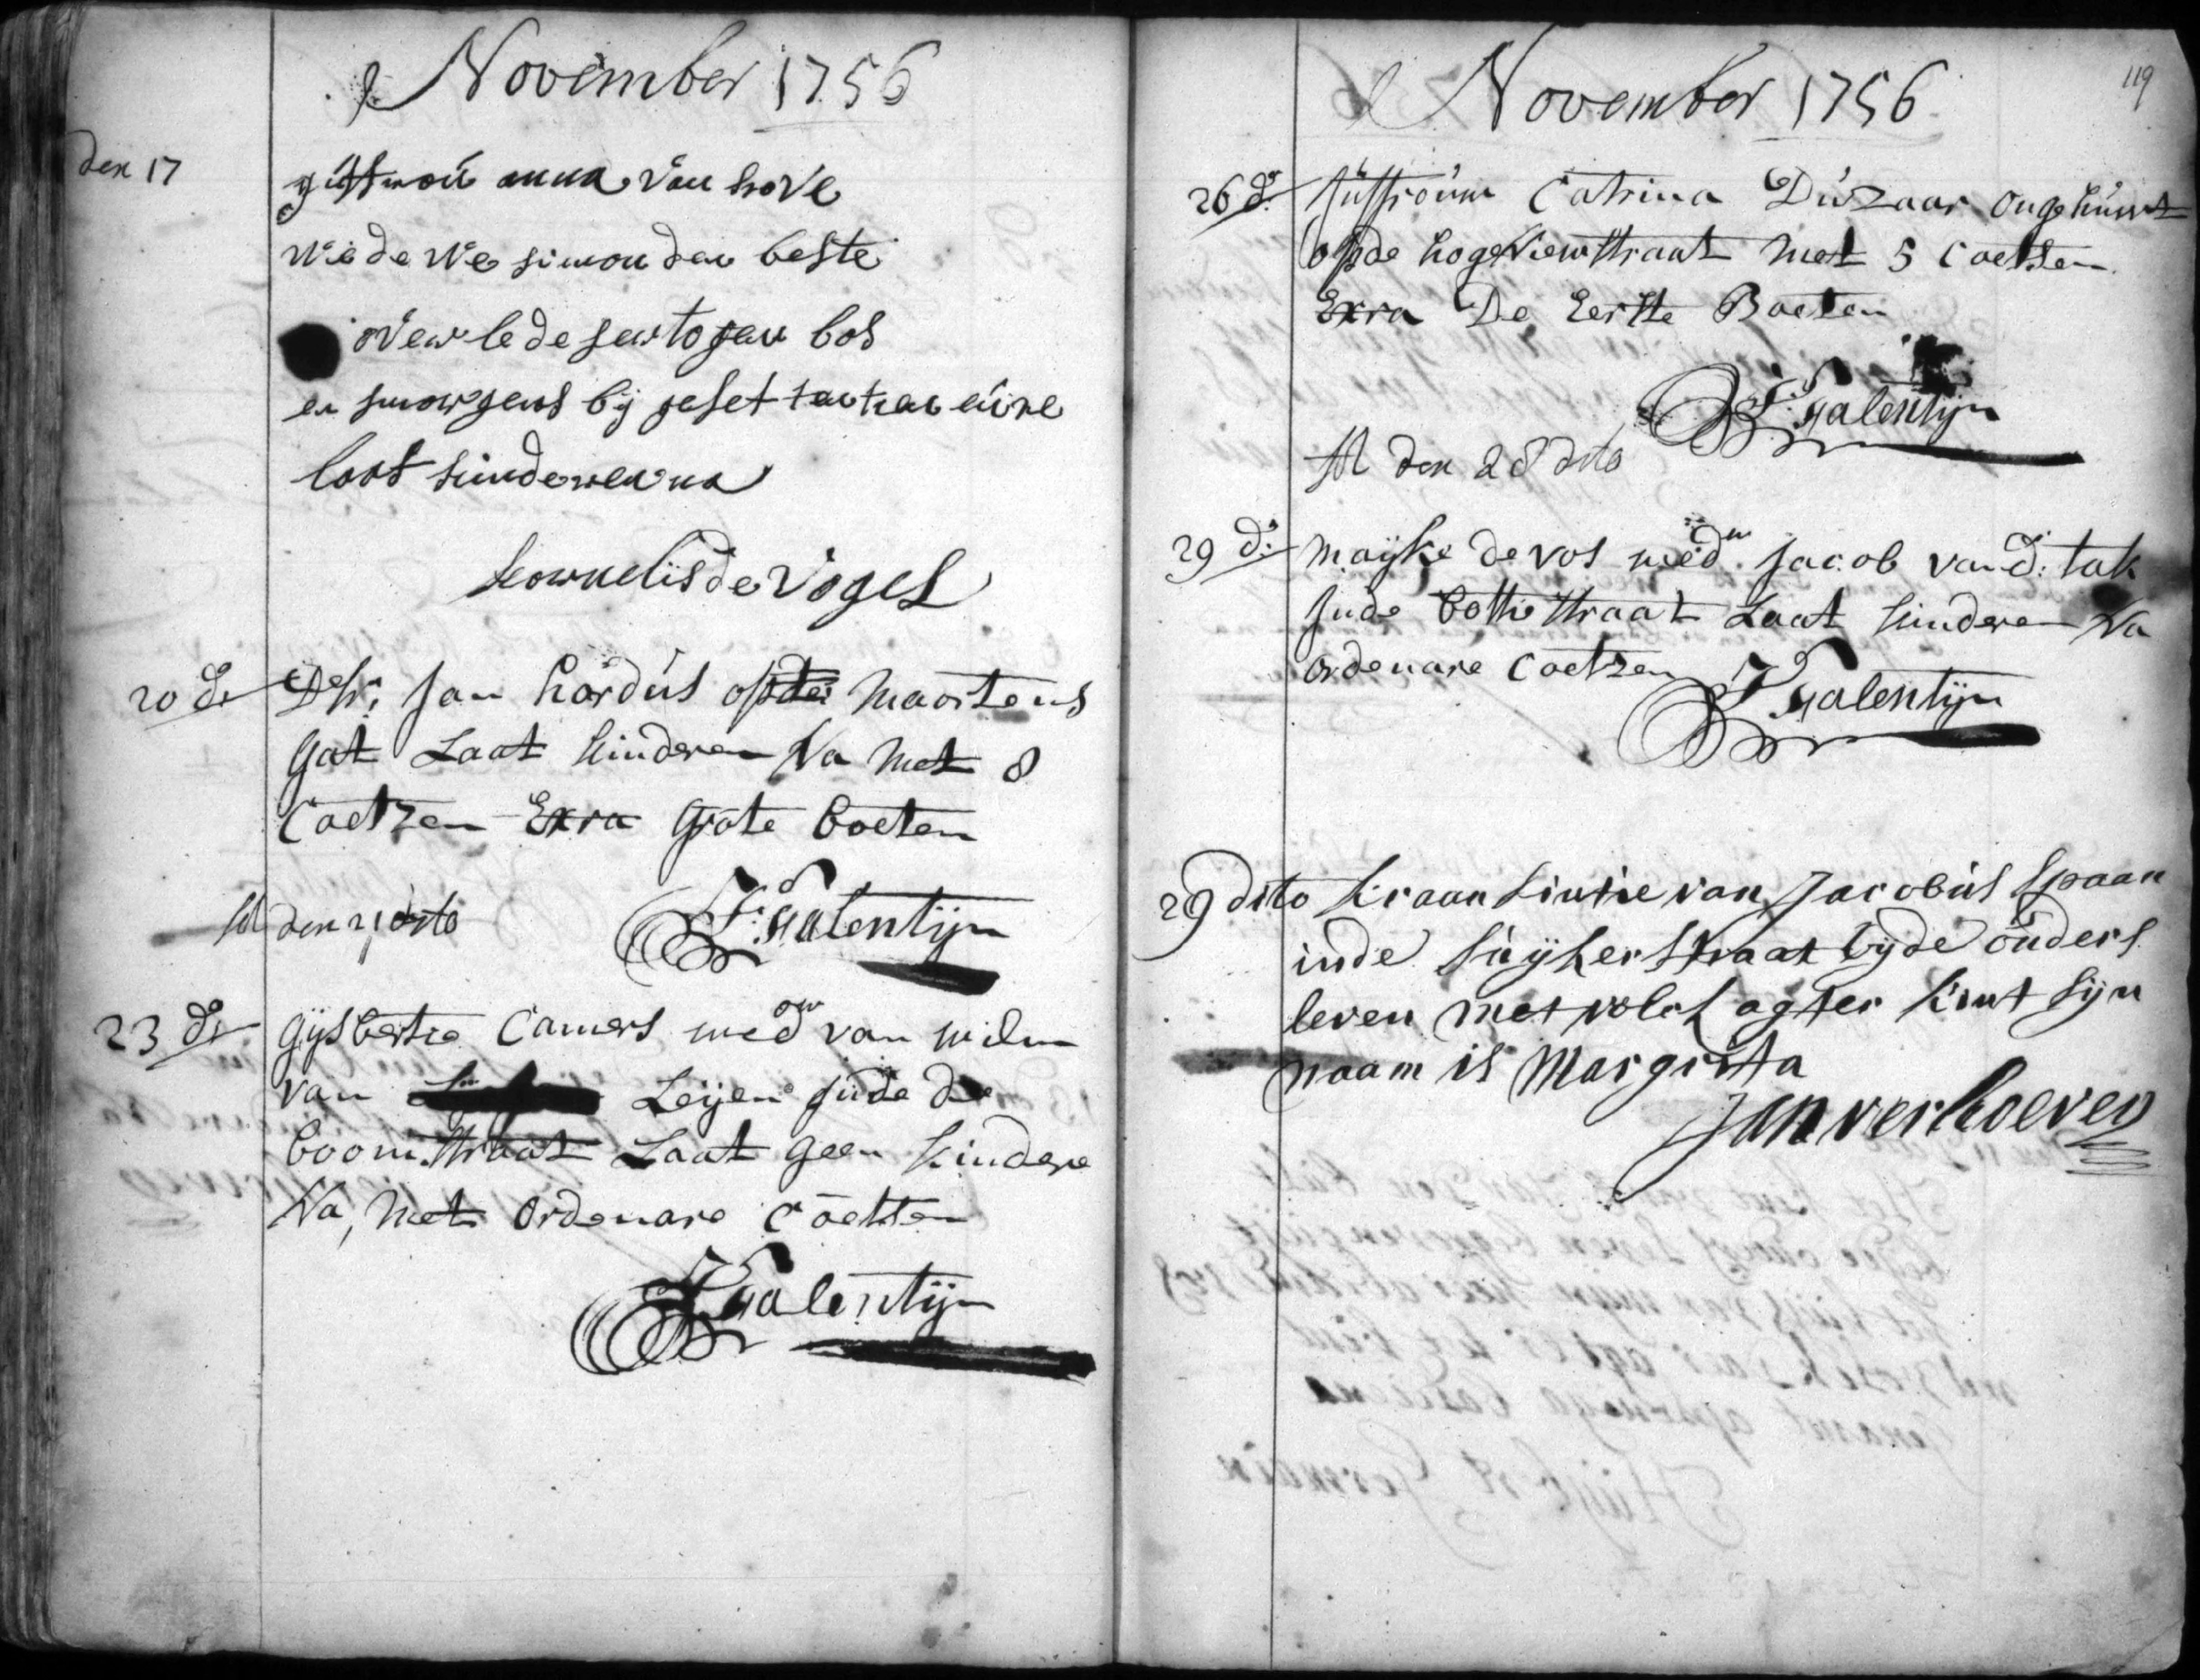 November 1756
den 17
juffrou anna van hove
wedewe simon den beste
overlede sertogen bos
en smorgens bij geset tentien eure
laat kinderen na
kornelis de Vogel
20 do
Dhr. Jan hardus opde Maortens
gat Laat kinderen Na Met 8
Coetzen Exra grote boeten
den 21 dito
Valentijn
23 do
Gijsbertie Camers wedow van wilm
van Leijen Inde de
boomstraat Laat geen kindere
Na, Met ordenare Coetsen
Valentijn
119
November 1756
26 do Juffrouw Catrina Duzaar ongehuwt
opde hogenieuwstraat Met 5 Coetsen
Exra De Eerste Boeten
Valentijn
den 28 dito
29 do Mayke de vos wedw Jacob van d: tak
Inde botte straat Laat kinderen Na
ordenare Coetzen
Valentijn
29 dito kraan kintie van Jacobus Spaan
inde suykerstraat bijde ouders
leven met volck agter kint sijn
naam is Margrita
Jan verhoeven